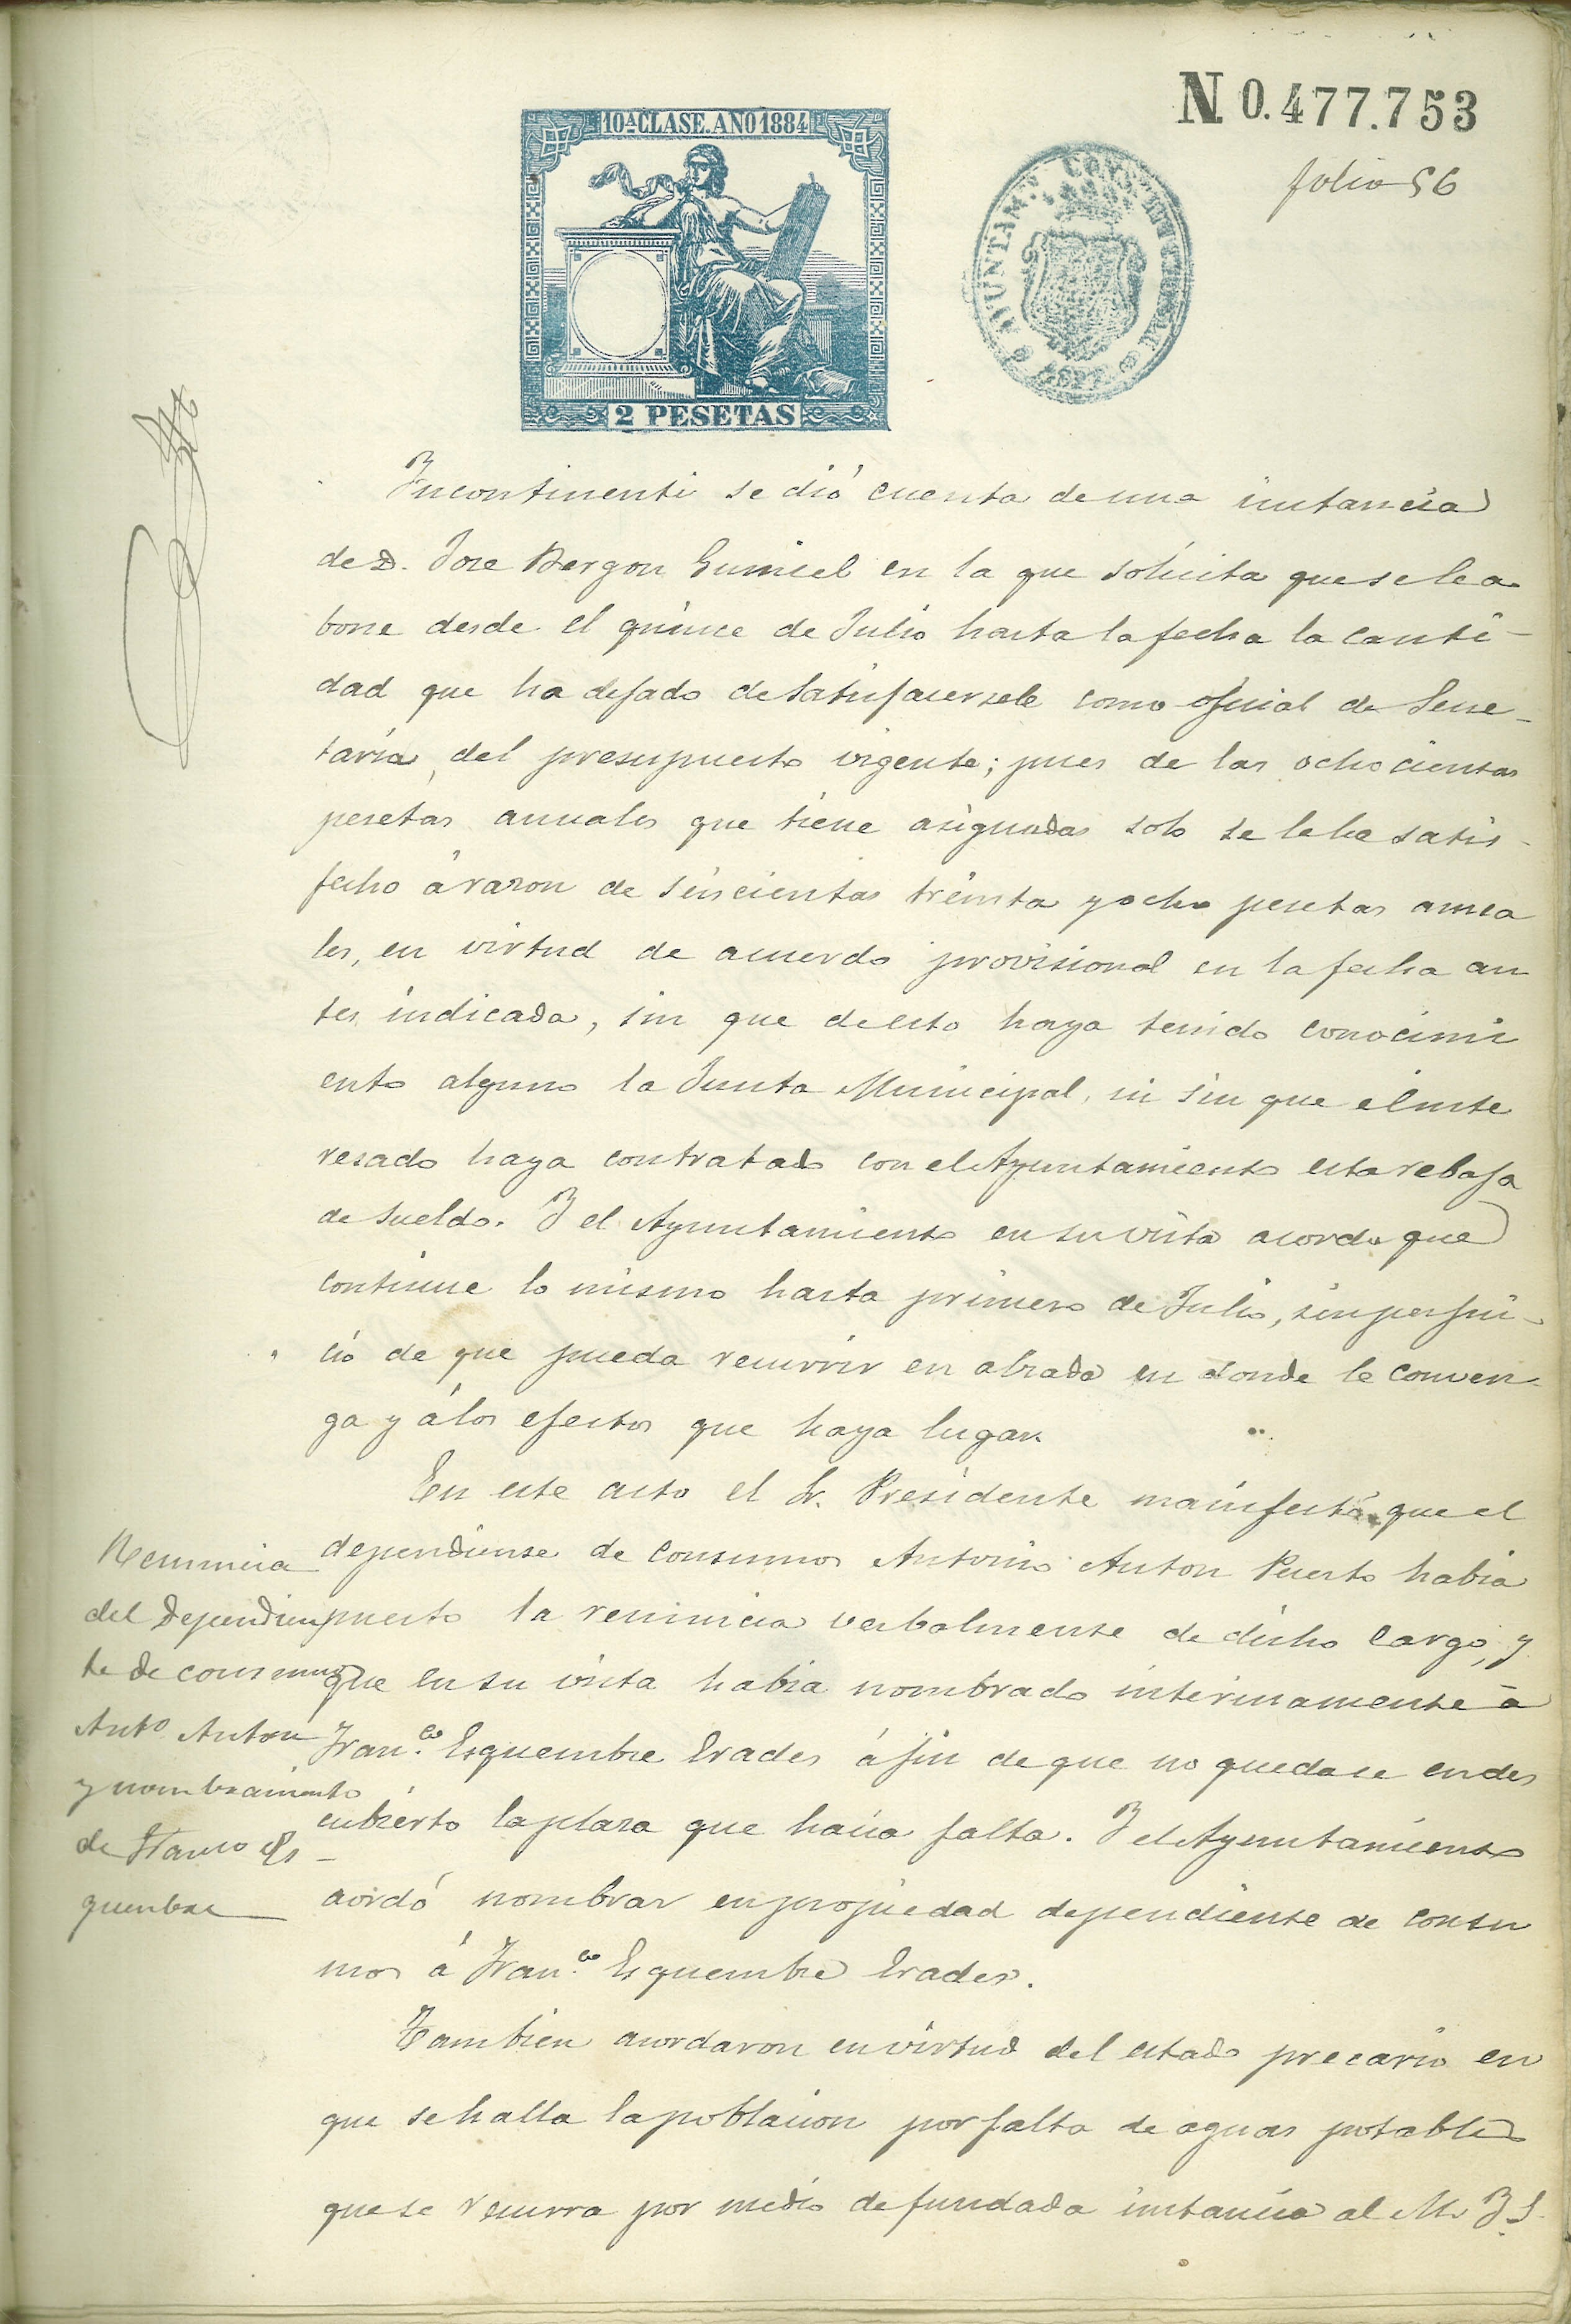 N 0.477.753
folio 56
10ª CLASE. AÑO 1884
2 PESETAS
AYUNTAM.º CONSTITUCIONAL
ASPE
Incontinenti se dió cuenta de una instancia
de D. Jose Bergon Gumiel en la que solicita que se le a
bone desde el quince de Julio hasta la fecha la canti-
dad que ha dejado de satisfacersele como oficial de Secre-
taría, del presupuesto vigente; pues de las ochocientas
pesetas anuales que tiene asignadas solo se le ha satis-
fecho á razon de seiscientas treinta y ocho pesetas anua
les, en virtud de acuerdo provisional en la fecha an
tes indicada, sin que de esto haya tenido conocimi
ento alguno la Junta Municipal, ni sin que el inte
resado haya contratado con el Ayuntamiento esta rebaja
de sueldo. Y el Ayuntamiento en su vista acordo que
continue lo mismo hasta primero de Julio, sin perjui-
cio de que pueda recurrir en alzada en donde le conven-
ga y á los efectos que haya lugar.
En este acto el Sr. Presidente manifestó que el
dependiense de consumos Antonio Anton Puerto habia
puesto la renuncia verbalmente de dicho cargo, y
que en su vista habia nombrado interinamente á
Fran.co Esquembre Erades á fin de que no quedase en des
cubierto la plaza que hacia falta. Y el Ayuntamiento
acordó nombrar en propiedad dependiente de consu
mos á Fran.co Esquembre Erades.
Renuncia
del Dependien
te de consumos
Antº Anton
y nombramiento
de Franco Es-
quembre
Tambien acordaron en virtud del estado precario en
que se halla la poblacion por falta de aguas potables
que se recurra por medio de fundada instancia al M. Y. S.